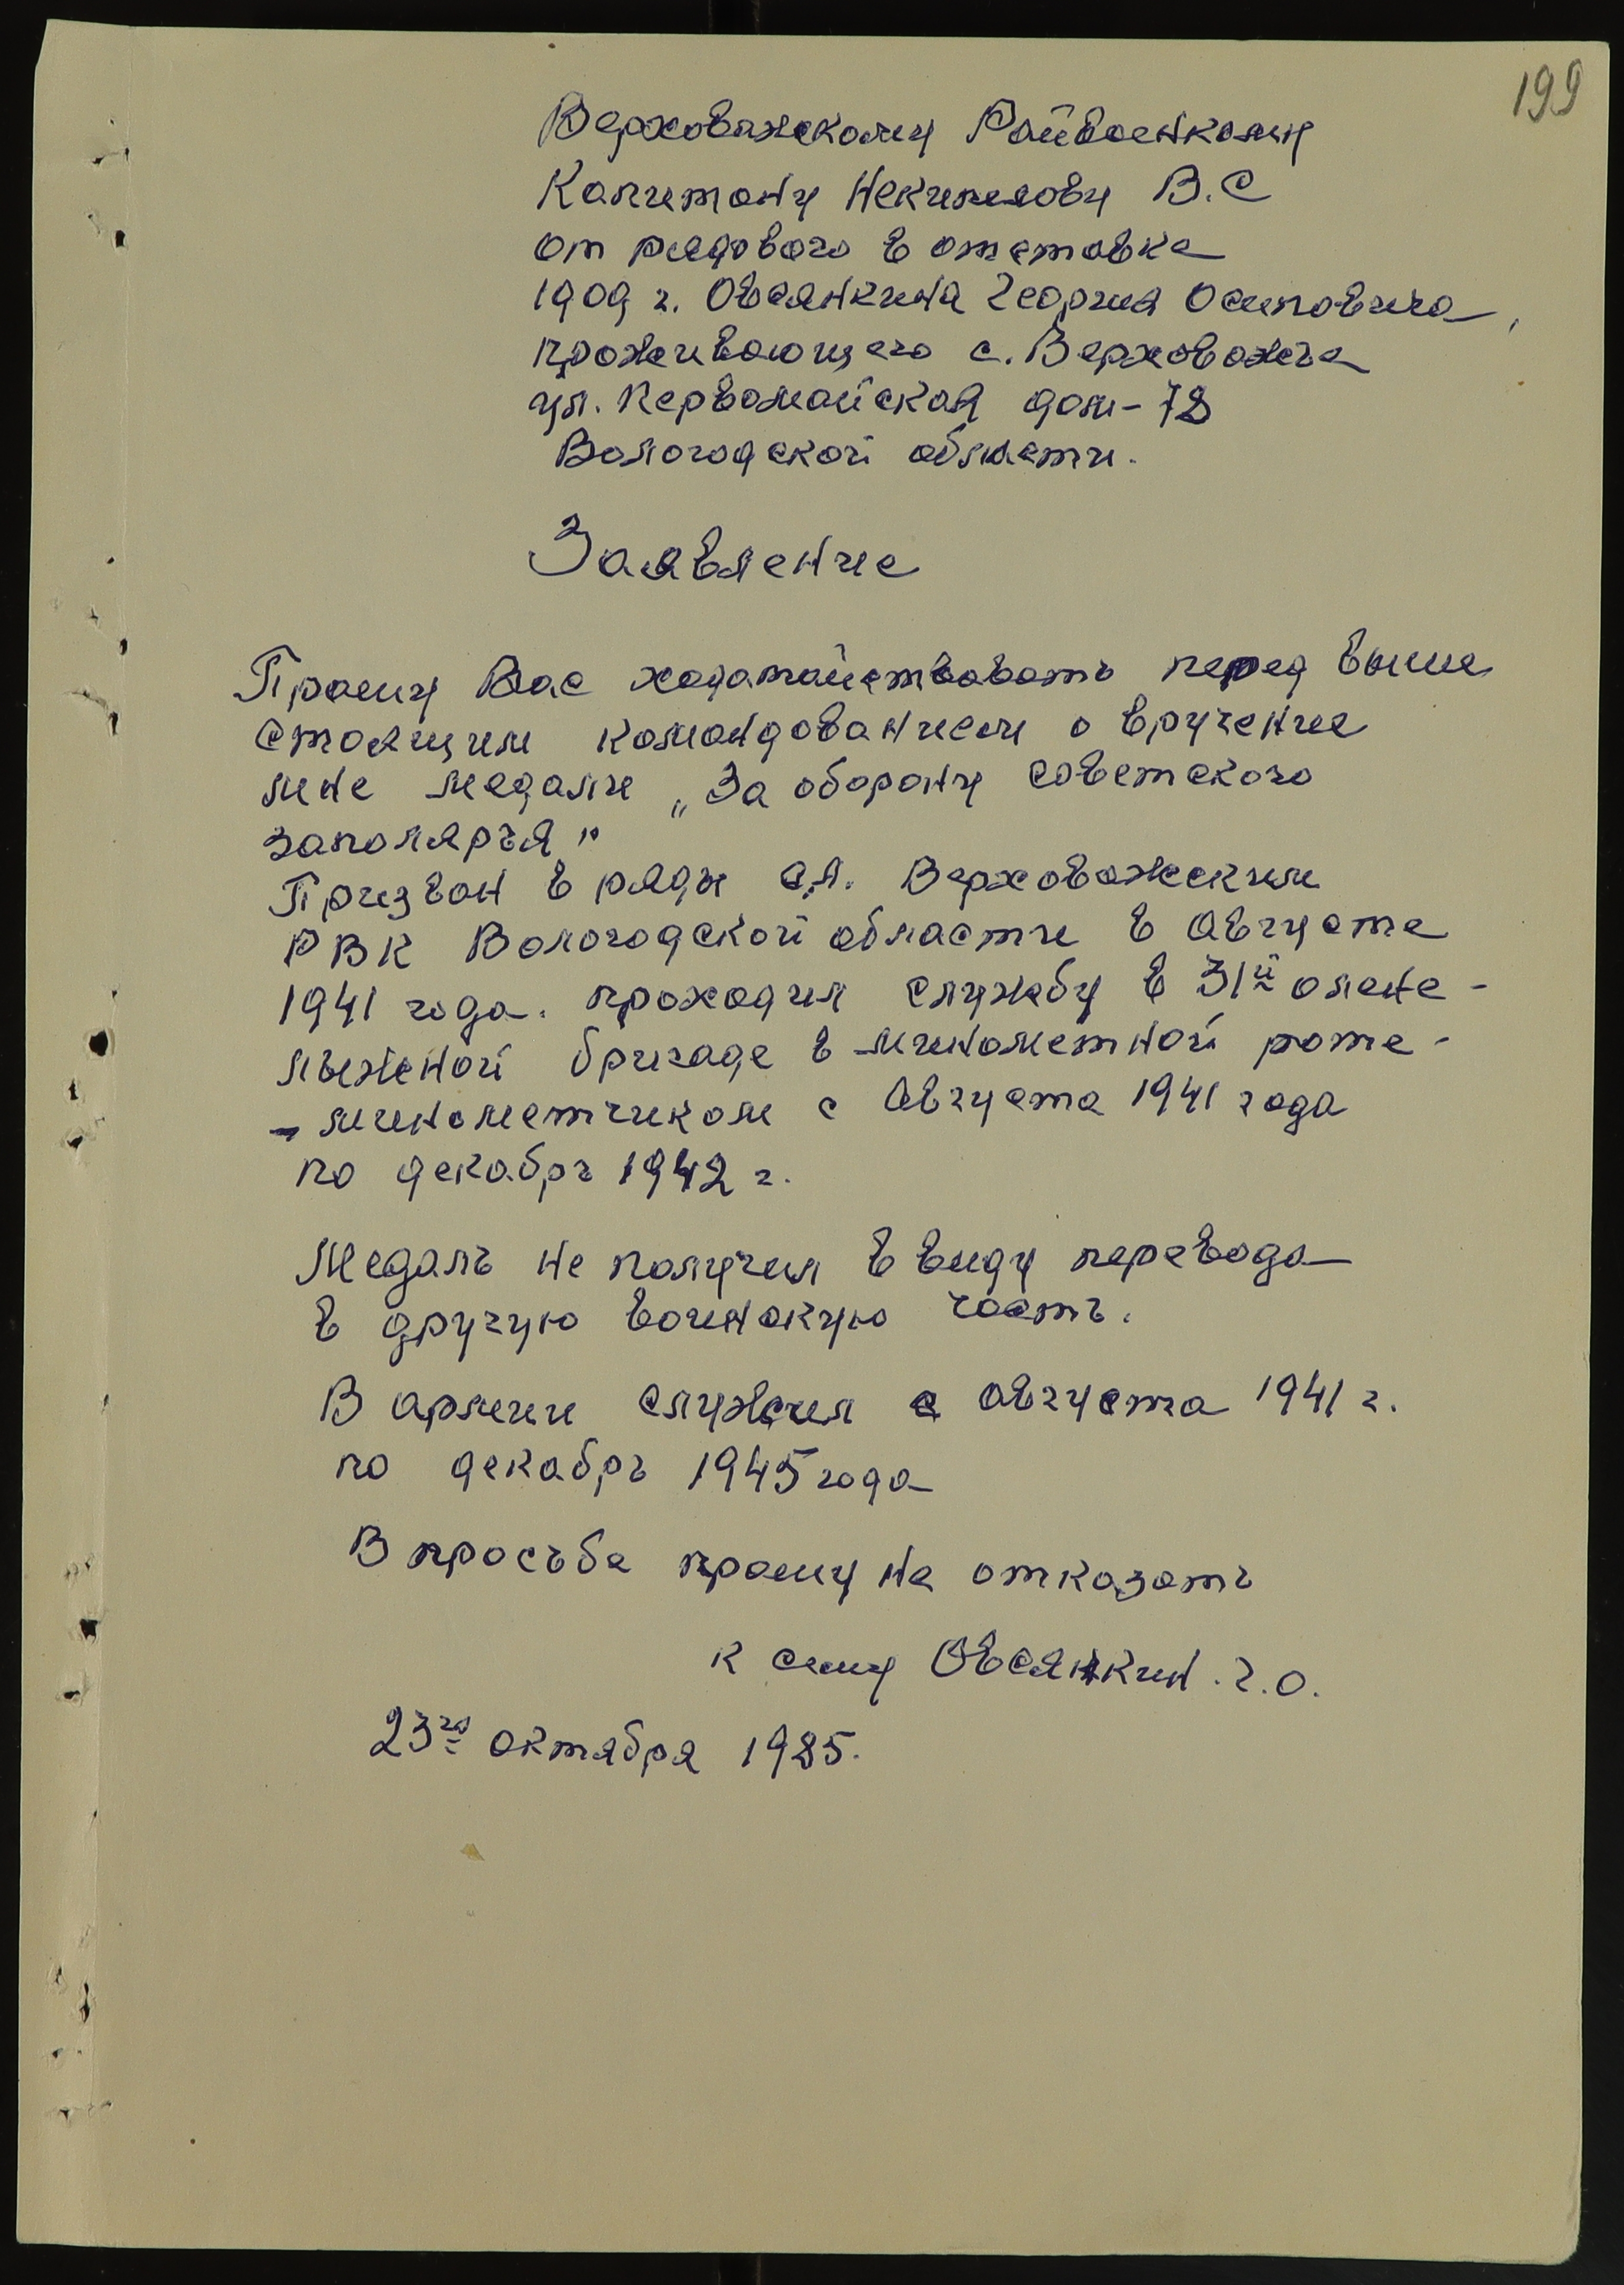 199
Верховажскому Райвоенкому
Капитану Некипелову В.С
от рядового в отставке
1909 г. Овсянкина Георгия Осиповича,
проживающего с. Верховажье
ул. Первомайская дом-78
Вологодской области.
Заявление
Прошу Вас ходатайствовать перед выше
стоящим командованием о вручение
мне медали „За оборону советского
заполярья"
Призван в ряды С.А. Верховажским
РВК Вологодской области в Августе
1941 года. проходил службу в 31й олене-
лыжной бригаде в миномётной роте-
- минометчиком с Августа 1941 года
по декабрь 1942 г.
Медаль не получил в виду перевода
в другую воинскую часть.
В армии служил с августа 1941 г.
по декабрь 1945 года
В просьбе прошу не отказать
к сему Овсянкин. Г.О.
23го октября 1985.